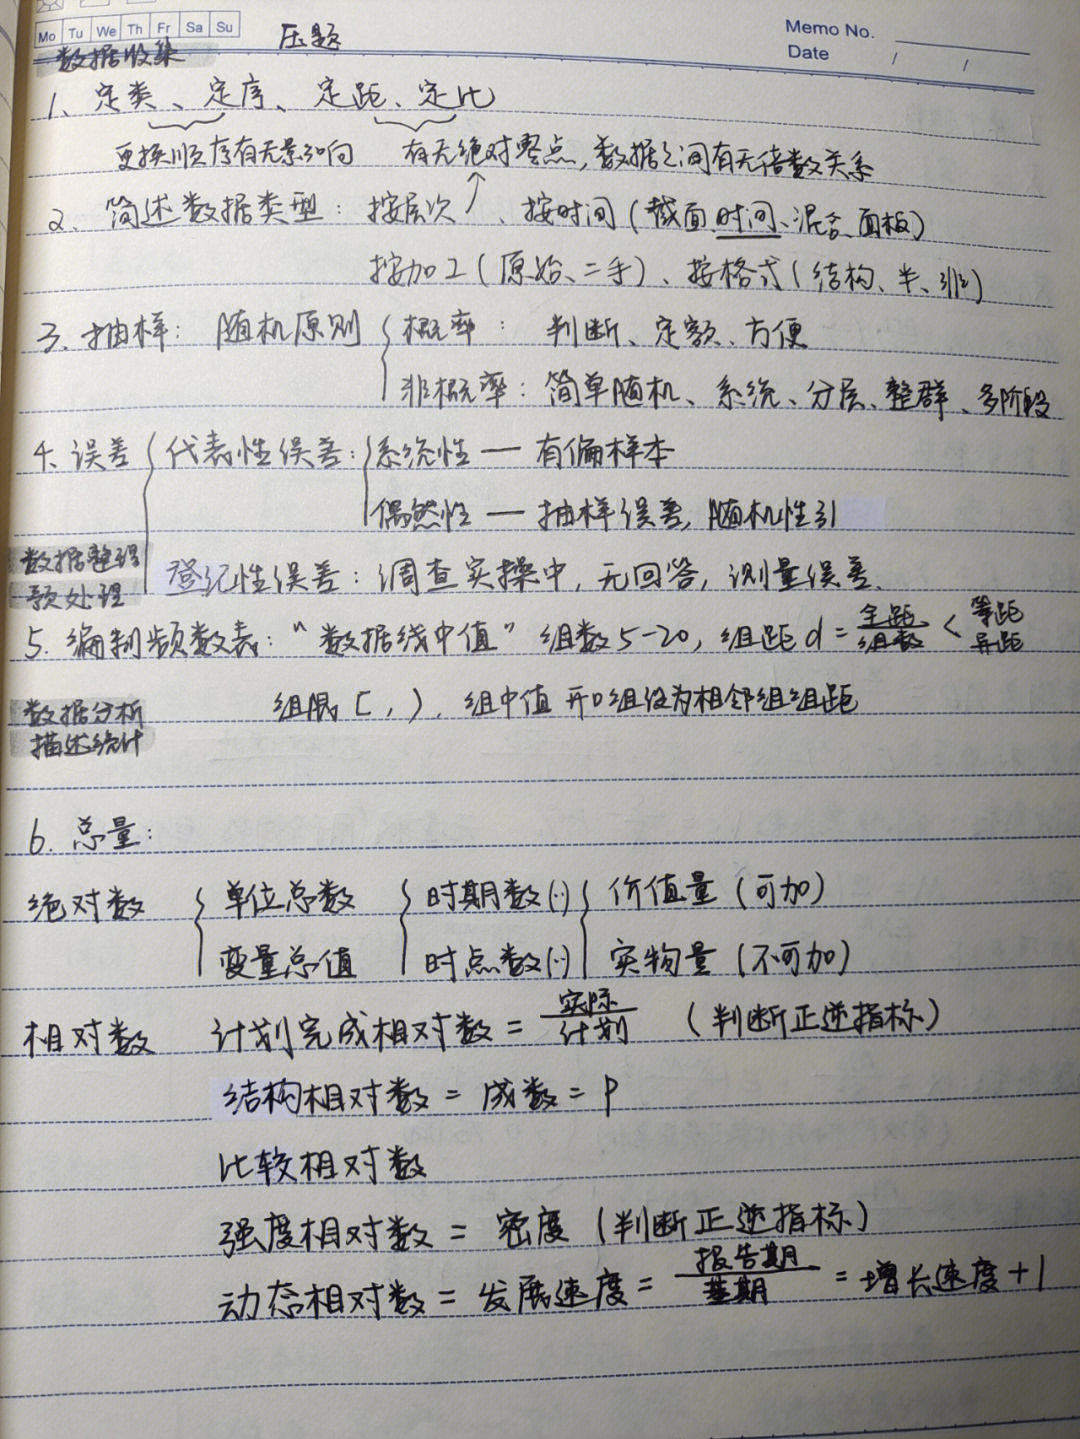 Mo Tu We Th Fr Sa Su
压题
Memo No.
Date / /
数据收集
1、定类、定序、定距、定比
更换顺序有无影响 有无绝对零点,数据之间有无倍数关系
2、简述数据类型:按层次、按时间(截面、时间、混合、面板)
按加工(原始、二手)、按格式(结构、半、非)
3、抽样:随机原则 概率:判断、定额、方便
非概率:简单随机、系统、分层、整群、多阶段
4、误差 代表性误差:系统性—有偏样本
偶然性—抽样误差,随机性引
数据整理
预处理
登记性误差:调查实操中,无回答,测量误差.
5、编制频数表:“数据线中值”组数5-20,组距d=全距/组数<等距 异距
组限[,),组中值 开口组设为相邻组组距
数据分析
描述统计
6、总量:
绝对数 单位总数 时期数(·) 价值量(可加)
变量总值 时点数(·) 实物量(不可加)
相对数 计划完成相对数=实际/计划 (判断正逆指标)
结构相对数=成数=P
比较相对数
强度相对数=密度(判断正逆指标)
动态相对数=发展速度=报告期/基期=增长速度+1